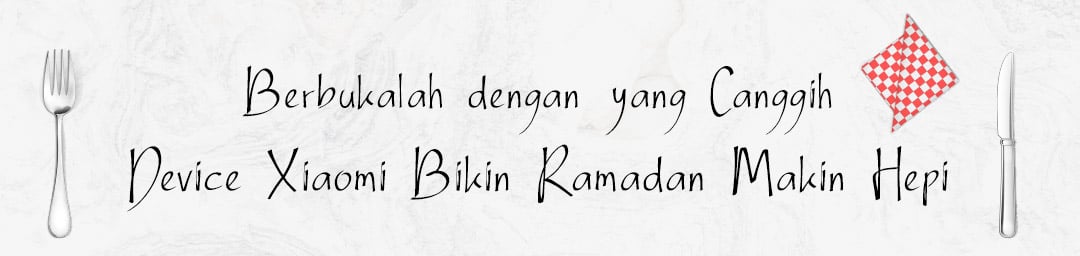 Berbukalah dengan yang Canggih
Device Xiaomi Bikin Ramadan Makin Hepi